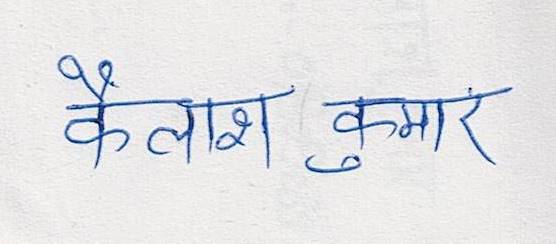 कैलाश कुमार